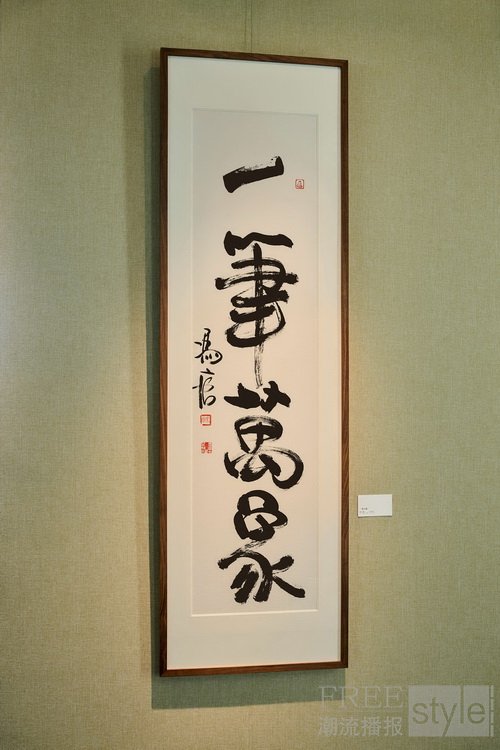 一筆萬象
馮唐
FREE
style
潮流播报